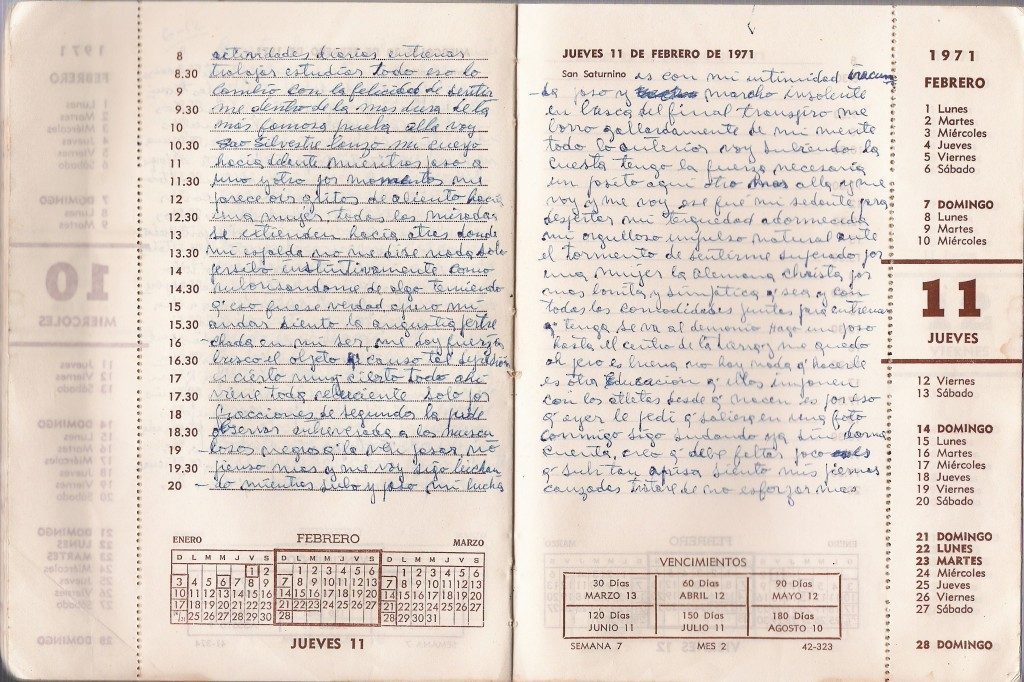 8 actividades diarias entrenar
8.30 trabajar estudiar todo eso lo
9 cambio con la felicidad de sentir
9.30 me dentro de la mas dura de la
10 mas famosa prueba alla voy
10.30 San Silvestre lanzo mi cuerpo
11 hacia delante mientras paso a
11.30 uno y otro por momentos me
12 parece oir gritos de aliento hacia
12.30 una mujer todas las miradas
13 se extienden hacia atras donde
13.30 mi espalda no me dise nada solo
14 persibo instintivamente como
14.30 ruborisandome de algo temiendo
15 q' eso fuese verdad apuro mi
15.30 andar siento la angustia pertre
16 -chada en mi ser, me doy fuerzas
16.30 busco el objeto q' causo tal depresión
17 es cierto muy cierto todo ahi
17.30 viene toda reluciente solo por
18 fracciones de segundos la pude
18.30 observar entreverada a los muscu
19 -losos negros q' la ven pasar, no
19.30 pienso mas y me voy sigo luchan
20 -do mientras subo y paso mi lucha
ENERO FEBRERO MARZO
D L M M J V S D L M M J V S D L M M J V S
1 2 1 2 3 4 5 6 1 2 3 4 5 6
3 4 5 6 7 8 9 7 8 9 10 11 12 13 7 8 9 10 11 12 13
10 11 12 13 14 15 16 14 15 16 17 18 19 20 14 15 16 17 18 19 20
17 18 19 20 21 22 23 21 22 23 24 25 26 27 21 22 23 24 25 26 27
24/31 25 26 27 28 29 30 28 28 29 30 31
JUEVES 11
JUEVES 11 DE FEBRERO DE 1971
San Saturnino es con mi intimidad
-da paso y marcho insolente
en busca del final transpiro me
borro gallardamente de mi mente
todo lo anterior voy subiendo la
cuesta tengo la fuerza necesaria
un pasito aqui otro mas alla y me
voy y me voy ese fué mi sedante para
despertar mi terquedad adormecida
mi orgulloso impulso natural ante
el tormento de sentirme superado por
una mujer la alemana Christa por
mas bonita y simpatica q' sea y con
todas las comodidades juntas para entrenar
q' tenga se va al demonio hago un paso
hasta el centro de la tierra y me quedo
ah pero es buena no hay nada q' hacerle
es otra Educación q' ellos imponen
con los atletas desde q' nacen es por eso
q' ayer le pedi q' saliera en una foto
conmigo sigo sudando ya sin darme
cuenta, creo q' debe faltar poco
q' subitan aprisa siento mis piernas
canzadas tratare de no esforzar mas
VENCIMIENTOS
30 Días 60 Días 90 Días
MARZO 13 ABRIL 12 MAYO 12
120 Días 150 Días 180 Días
JUNIO 11 JULIO 11 AGOSTO 10
SEMANA 7 MES 2 42-323
1971
FEBRERO
1 Lunes
2 Martes
3 Miércoles
4 Jueves
5 Viernes
6 Sábado
7 DOMINGO
8 Lunes
9 Martes
10 Miércoles
11
JUEVES
12 Viernes
13 Sábado
14 DOMINGO
15 Lunes
16 Martes
17 Miércoles
18 Jueves
19 Viernes
20 Sábado
21 DOMINGO
22 LUNES
23 MARTES
24 Miércoles
25 Jueves
26 Viernes
27 Sábado
28 DOMINGO